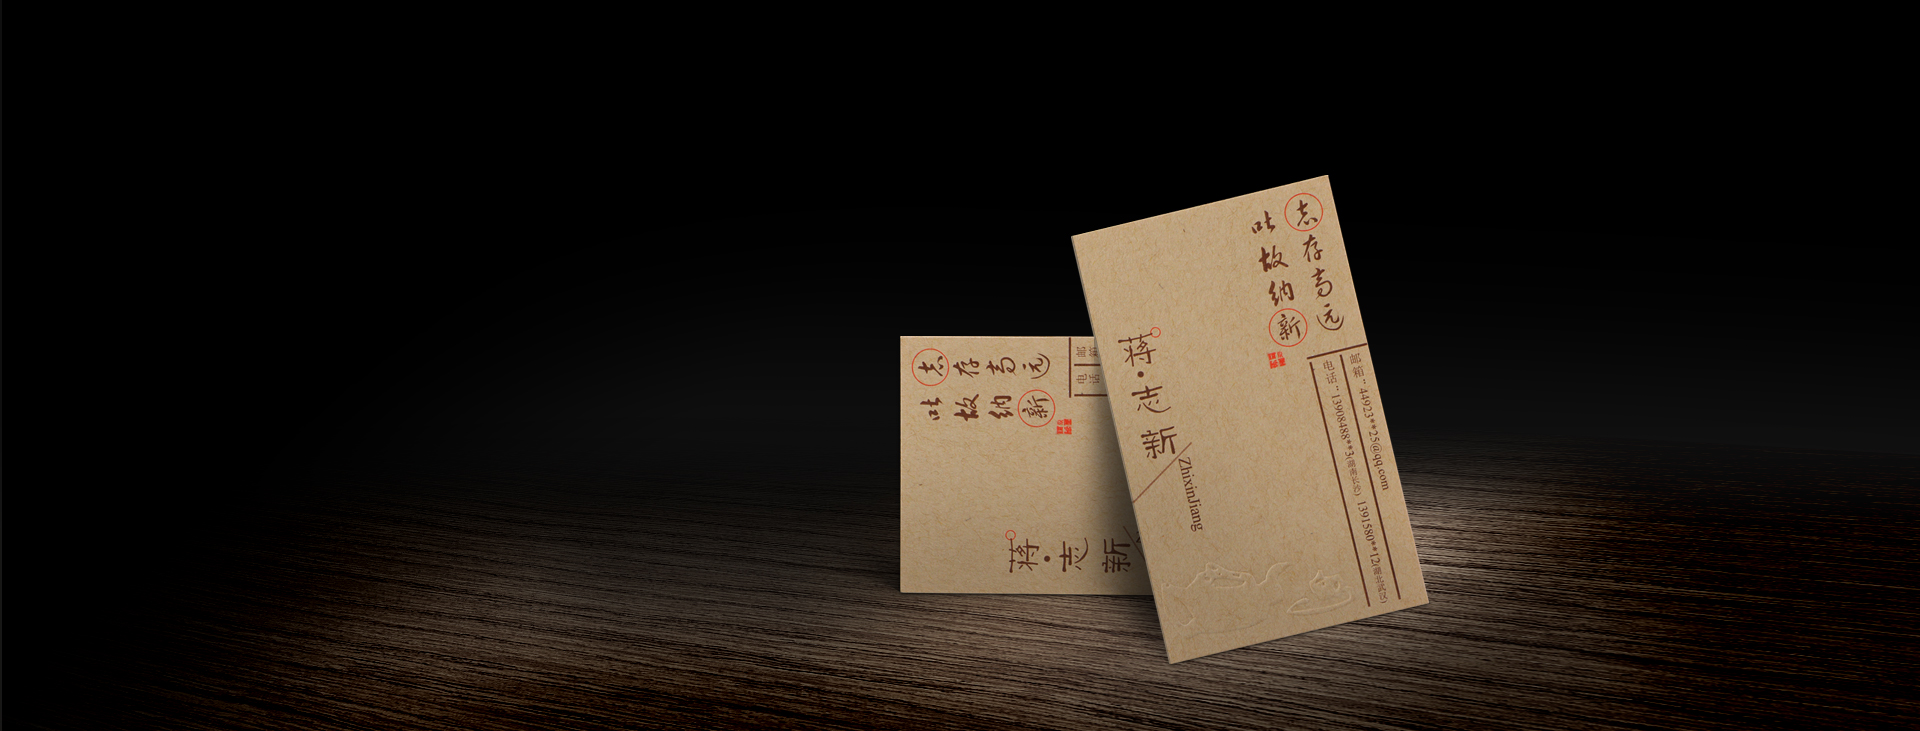 志存高远
吐故纳新
蒋·志新
ZhixinJiang
邮箱：44923**25@qq.com
电话：13908488**3(湖南长沙) 1391580**12(湖北武汉)
志存高远
吐故纳新
邮箱
电话
蒋·志新